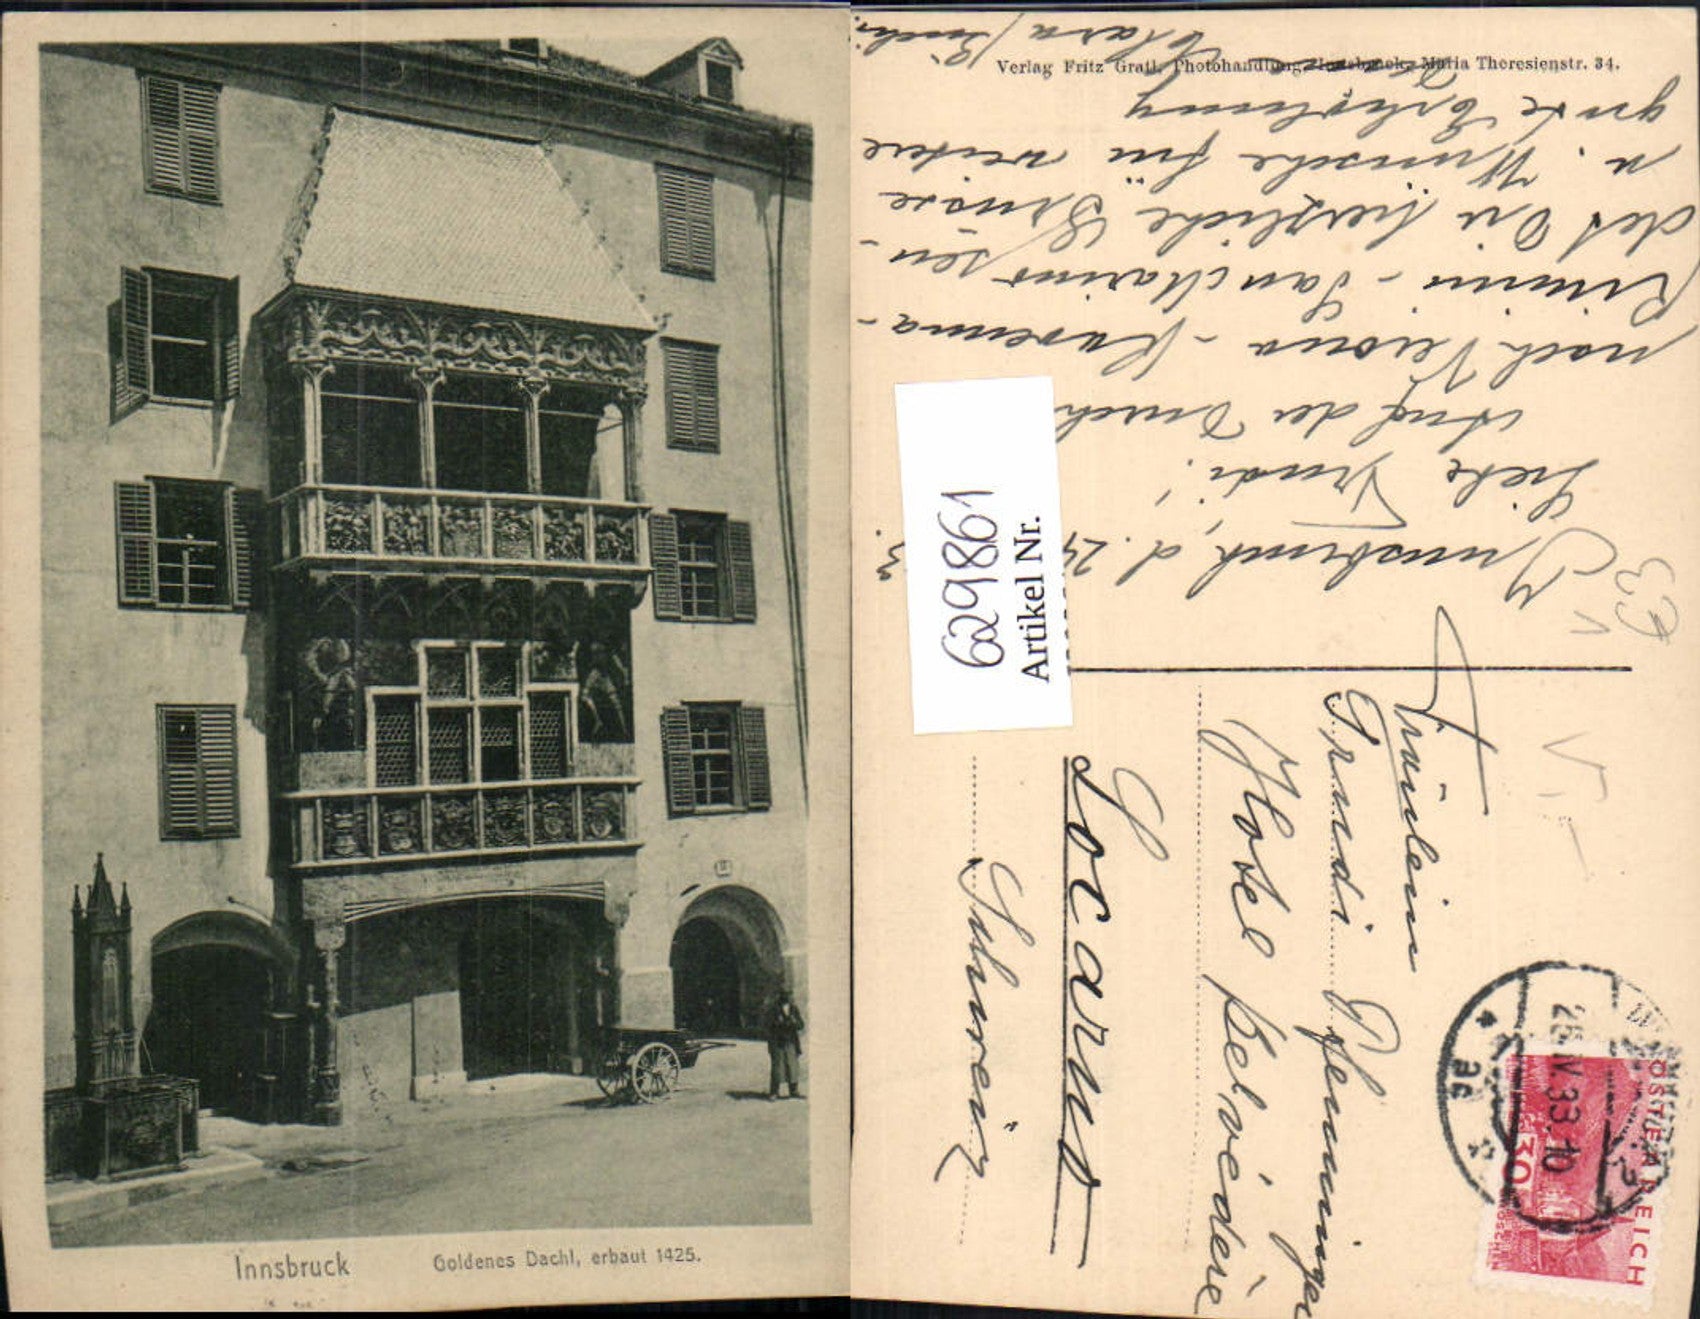 Innsbruck
Goldenes Dachl, erbaut 1425.
Verlag Fritz Gratl, Photohandlung, Innsbruck, Maria Theresienstr. 34.
Innsbruck, d. 24
Liebe Trudi!
Auf der Durch
nach Verona - Ravenna -
Rimini - San Marino sen-
det Dir herzliche Grüsse
u. Wünsche für weitere
gute Erholung
Clara
629861
Artikel Nr.
Fräulein
Trudi Pfenninger
Hotel Belvédère
Locarno
"Schweiz"
ÖSTERREICH
30
26.IV.33.10